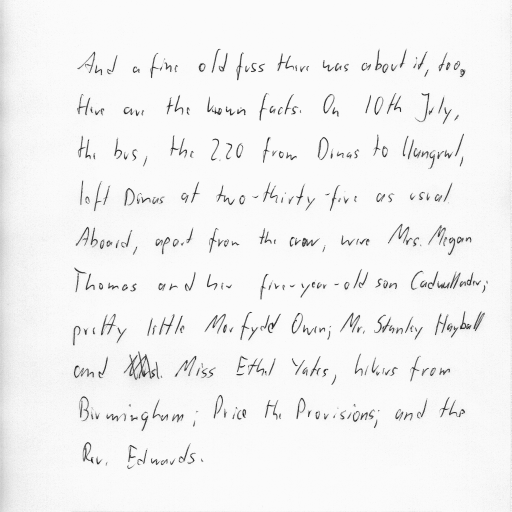 And a fine old fuss there was about it, too,
Here are the known facts. On 10th July,
the bus, the 2.20 from Dinas to Llangrwl,
left Dinas at two-thirty-five as usual.
Aboard, apart from the crew, were Mrs. Megan
Thomas and her five-year-old son Cadwallader;
pretty little Morfydd Owen; Mr. Stanley Hayball
and Miss Ethel Yates, hikers from
Birmingham; Price the Provisions; and the
Rev. Edwards.